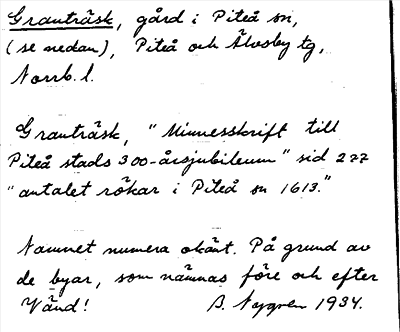 Granträsk, gård i Piteå sn,
(se nedan), Piteå och Älvsby tg,
Norrb. l.
Granträsk, "Minnesskrift till
Piteå stads 300-årsjubileum" sid 277
"antalet rökar i Piteå sn 1613."
Namnet numera okänt. På grund av
de byar, som nämnas före och efter
Vänd! B. Nygren 1934.